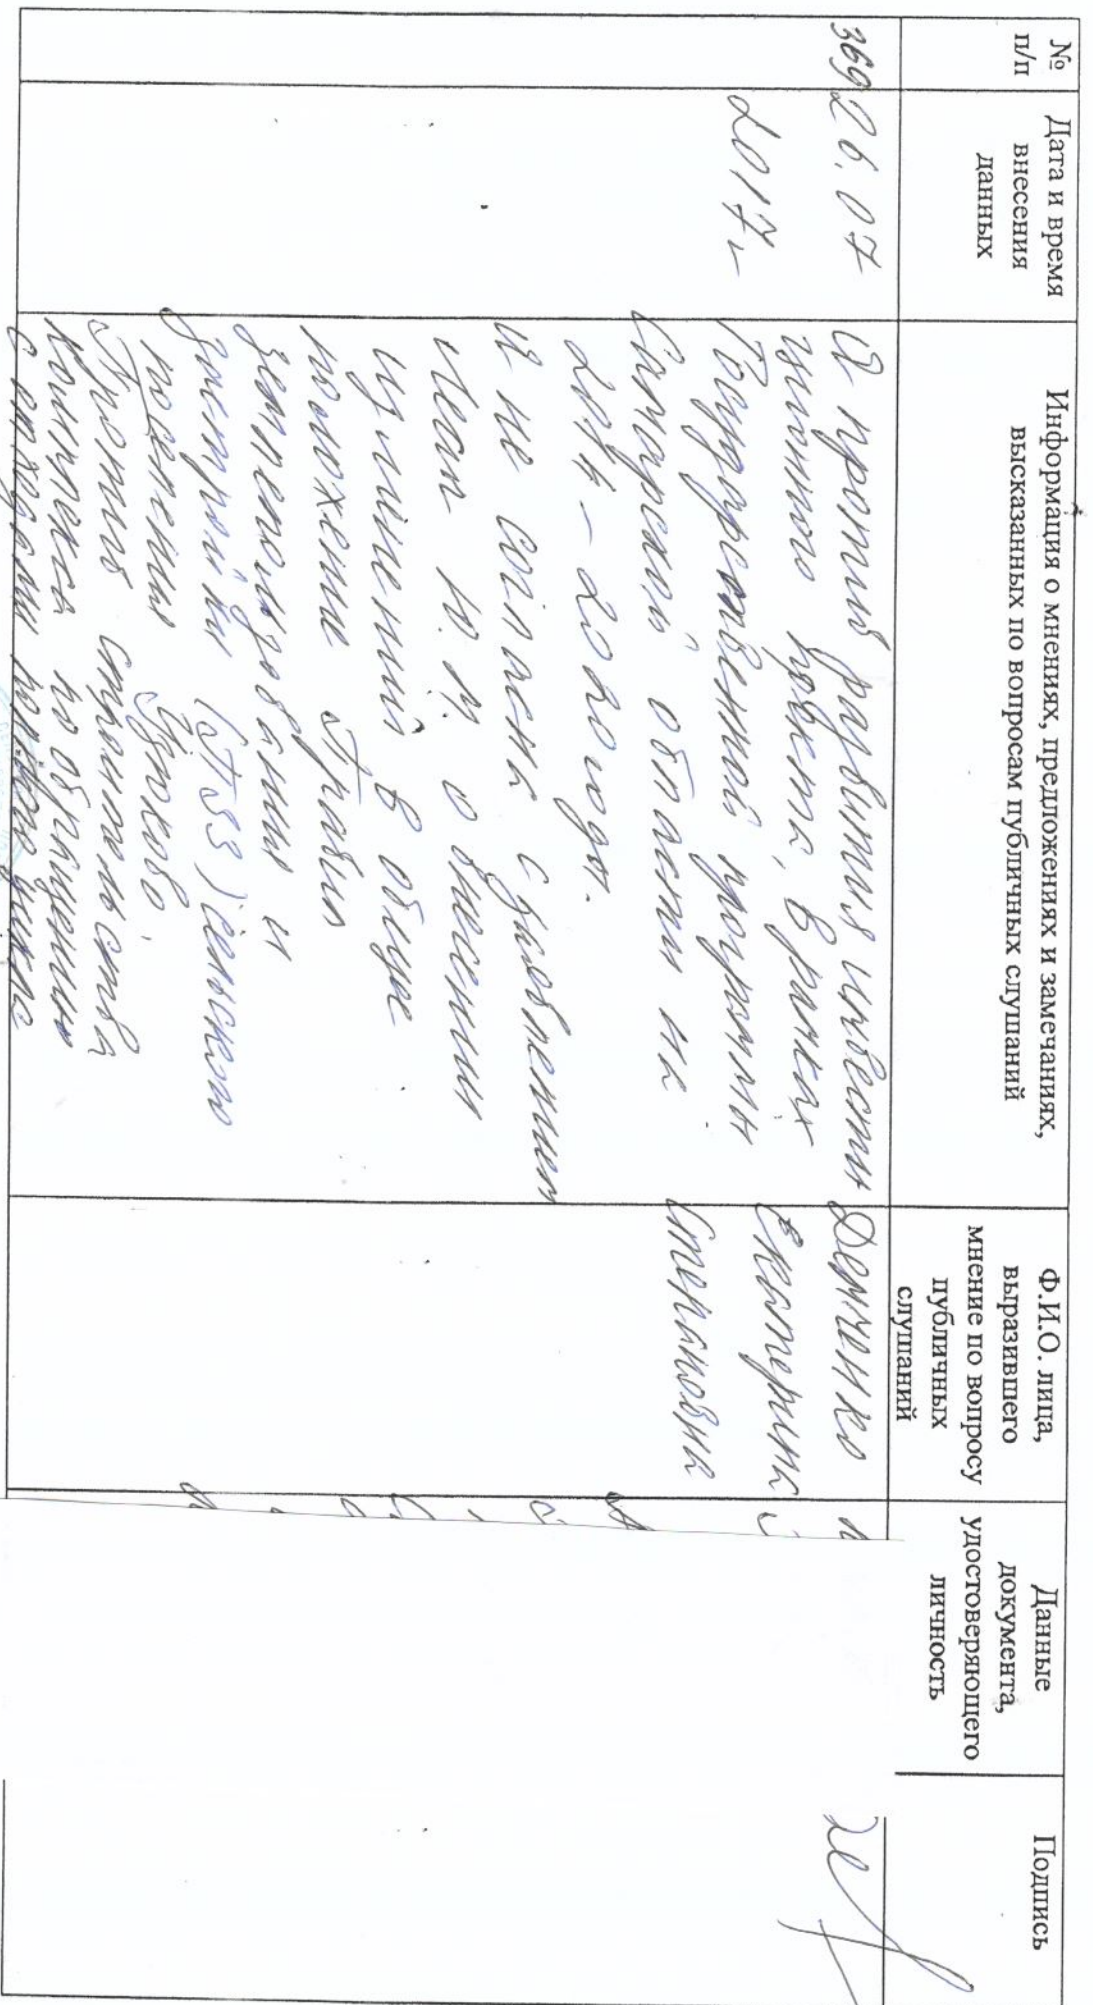 № п/п
Дата и время внесения данных
Информация о мнениях, предложениях и замечаниях, высказанных по вопросам публичных слушаний
Ф.И.О. лица, выразившего мнение по вопросу публичных слушаний
Данные документа, удостоверяющего личность
Подпись
369
26.07
2017г
Я против развития инвести
ционного проекта, в рамках
Государственной программы
Самарской области на
2014-2020 годы.
И не согласна с
о внесении
изменений в общие
положение Правил
землепользования и
застройки (ПЗЗ) сельского
поселения
Против строительства
комплекса по обращению
с отходами
Демченко
Екатерина
Степановна